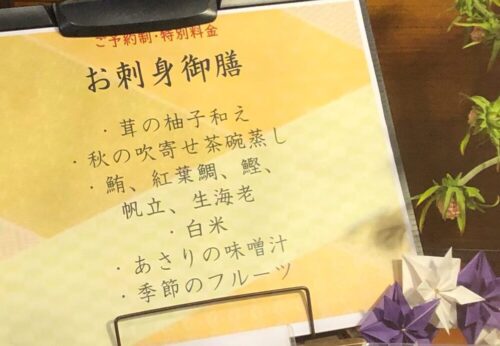 ご予約制・特別料金
お刺身御膳
・茸の柚子和え
・秋の吹寄せ茶碗蒸し
・鮪、紅葉鯛、鰹、
帆立、生海老
・白米
・あさりの味噌汁
・季節のフルーツ